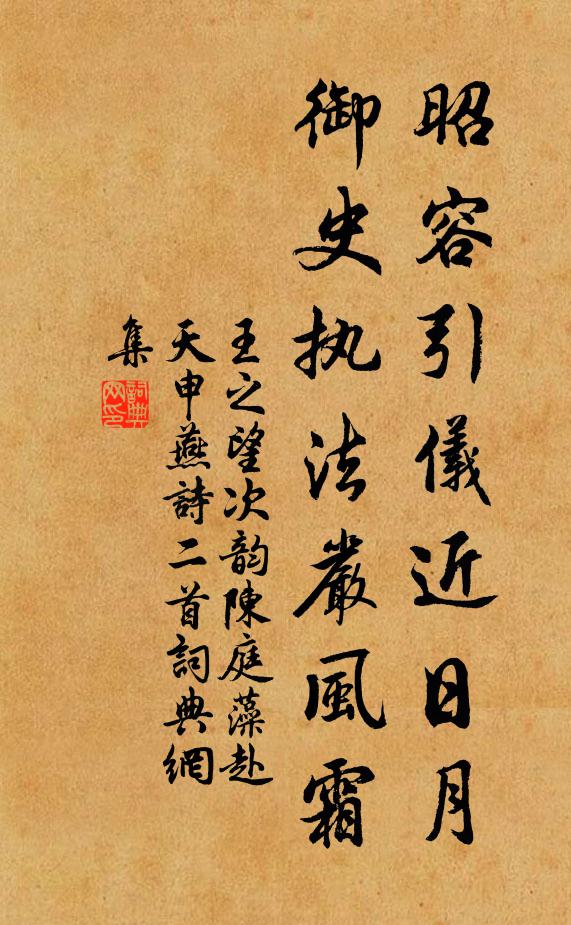 昭容引儀近日月
御史执法嚴風霜
王之望次韵陳庭藻赴
天申燕詩二首詞典網
集
詞典
网印